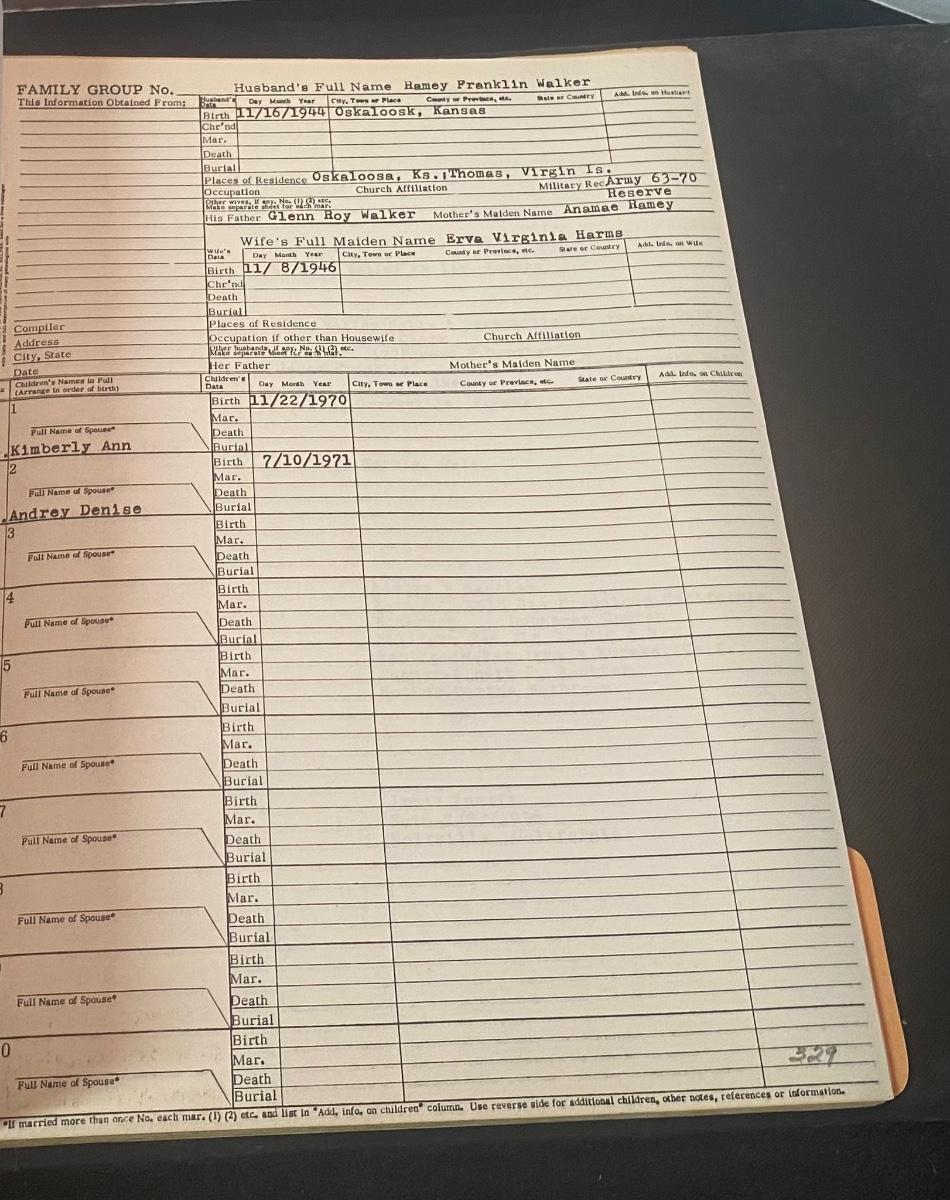 FAMILY GROUP No. Husband's Full Name Ramey Franklin Walker
This Information Obtained From: Husband's Data Day Month Year City, Town or Place County or Province, etc. State or Country Add. Info. on Husband
Birth 11/16/1944 Oskaloosk, Kansas
Chr'nd
Mar.
Death
Burial
Places of Residence Oskaloosa, Ks.;Thomas, Virgin Is.
Occupation Church Affiliation Military Rec Army 63-70
Reserve
Other wives, if any. No. (1) (2) etc.
Make separate sheet for each mar.
His Father Glenn Roy Walker Mother's Maiden Name Anamae Ramey
Wife's Full Maiden Name Erva Virginia Harms
Wife's Data Day Month Year City, Town or Place County or Province, etc. State or Country Add. Info. on Wife
Birth 11/ 8/1946
Chr'nd
Death
Burial
Compiler Places of Residence
Address Occupation if other than Housewife Church Affiliation
City, State Other husbands, if any. No. (1) (2) etc.
Make separate sheet for each mar.
Date Her Father Mother's Maiden Name
Children's Names in Full
(Arrange in order of birth) Children's Data Day Month Year City, Town or Place County or Province, etc. State or Country Add. Info. on Children
1 Birth 11/22/1970
Mar.
Full Name of Spouse* Death
Kimberly Ann Burial
2 Birth 7/10/1971
Mar.
Full Name of Spouse* Death
Andrey Denise Burial
3 Birth
Mar.
Full Name of Spouse* Death
Burial
4 Birth
Mar.
Full Name of Spouse* Death
Burial
5 Birth
Mar.
Full Name of Spouse* Death
Burial
6 Birth
Mar.
Full Name of Spouse* Death
Burial
7 Birth
Mar.
Full Name of Spouse* Death
Burial
Birth
Mar.
Full Name of Spouse* Death
Burial
Birth
Mar.
Full Name of Spouse* Death
Burial
0 Birth
Mar. 329
Full Name of Spouse* Death
Burial
*If married more than once No. each mar. (1) (2) etc. and list in "Add, info, on children" column. Use reverse side for additional children, other notes, references or information.